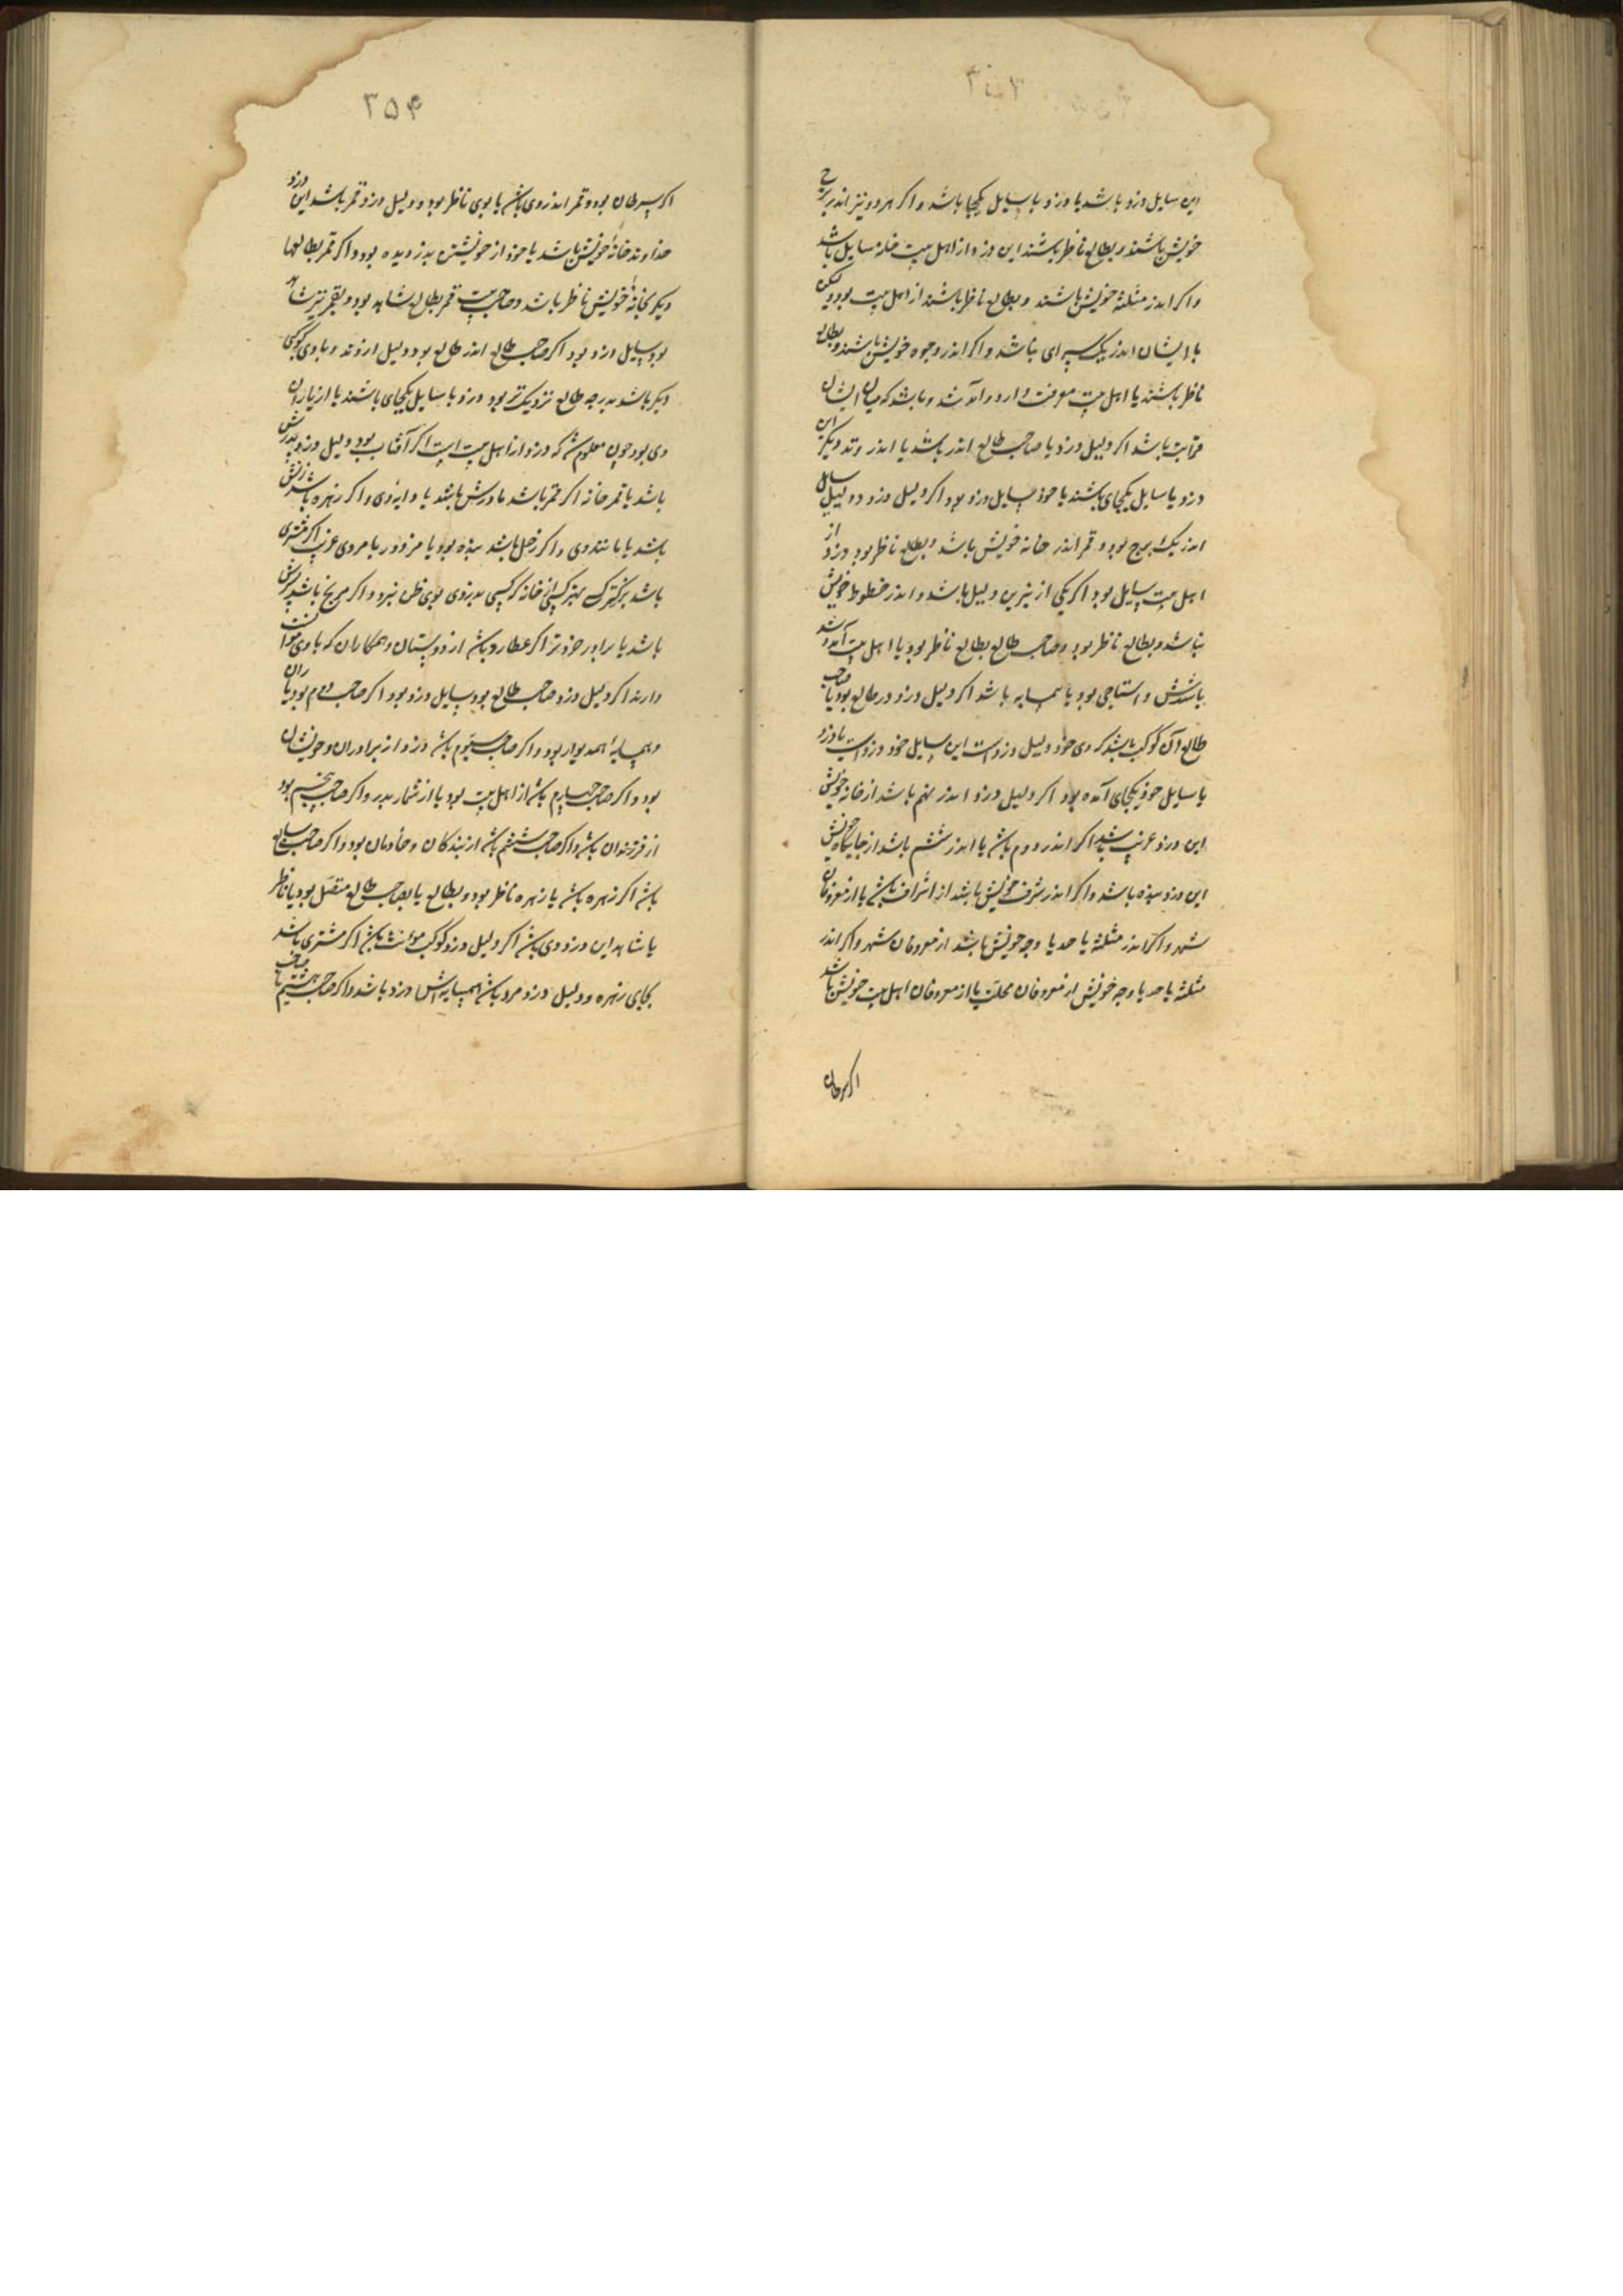 ۳۵۳
این سایل دزد باشد یا دزد با سایل یکجا باشد و اکر هر دو نیز اندر برج
خویش باشند و بطالع ناظر باشند این دزد از اهل بیت خانه سایل باشد
واکر اندر مثلثه خویش باشند و بطالع ناظر باشند از اهل بیت بود ولیکن
با ایشان اندر یک سرای نباشد و اکر اندر وجوه خویش باشند و بطالع
ناظر باشند با اهل بیت معرفت دارد و آمد شد و باشد که میان ایشان
قرابت باشد اکر دلیل دزد با صاحب طالع اندر باشد یا اندر وتد دیکر این
دزد با سایل یکجای باشند یا خود سایل دزد بود اکر دلیل دزد و دلیل سایل
اندر یک برج بود و قمر اندر خانه خویش باشد و بطالع ناظر بود دزد از
اهل بیت سایل بود اکر یکی از نیرین دلیل باشد و اندر حظوظ خویش
نباشد و بطالع ناظر بود و صاحب طالع بطالع ناظر بود با اهل بیت آمد و شد
باشدش و استاخی بود یا همسایه باشد اکر دلیل دزد در طالع بود یا صاحب
طالع آن کوکب باشد که وی خود دلیل دزدست این سایل خود دزدست یا دزد
با سایل خود یکجای آمده بود اکر دلیل دزد اندر نهم باشد از خانه خویش
این دزد غریب باشد اکر اندر دوم باشد یا اندر ششم باشد از جایکاه خویش
این دزد بنده باشد واکر اندر شرف خویش باشد از اشراف باشد یا از معروفان
شهر و اکر اندر مثلثه یا حد یا وجه خویش باشد از معروفان شهر و اکر اندر
مثلثه یا حد یا وجه خویش از معروفان محلت یا از معروفان اهل بیت خویش باشد
اکر سرطان
۳۵۴
اکر سرطان بود و قمر اندر وی باشد یا بوی ناظر بود و دلیل دزد قمر باشد این دزد
خداوند خانه خویش باشد یا خود از خویشتن بدزدیده بود و اکر قمر بطالعها
دیکر بخانه خویش ناظر باشد و صاحب بیت قمر بطالع شاهد بود و بقمر نیز شاهد
بود سایل دزد بود اکر صاحب طالع اندر طالع بود و دلیل اندر وتد و با وی کوکبی
دیکر باشد بدرجه طالع نزدیک تر بود دزد با سایل یکجای باشند یا از یاران
وی بود چون معلوم شد که دزد از اهل بیت است اکر آفتاب بود دلیل دزد پدرش
باشد یا قمر خانه اکر قمر باشد مادرش باشد یا دایه وی و اکر زهره باشد زنش
باشد یا مانند وی و اکر زحل باشد بنده بود یا مزدور یا مردی غریب اکر مشتری
باشد بزرکترک مهتر کسی از خانه که کسی بدزدی بوی ظن نبرد و اکر مریخ باشد پسرش
باشد یا برادر خردتر اکر عطارد باشد از دوستان و همکاران که با وی موانست
دارند اکر دلیل دزد صاحب طالع بود سایل دزد بود و اکر صاحب دوم بود یاران
و همسایه همدیوار بود و اکر صاحب سیوم باشد دزد از برادران و خویشان
بود و اکر صاحب چهارم باشد از اهل بیت بود یا از شمار پدر و اکر صاحب پنجم بود
از فرزندان باشد و اکر صاحب ششم باشد از بندکان و خادمان بود و اکر صاحب سابع
باشد اکر زهره باشد یا زهره ناظر بود و بطالع یا بصاحب طالع متصل بود یا ناظر
یا شاهد این دزد وی باشد اکر دلیل دزد کوکب مؤنث باشد اکر مشتری باشد
بجای زهره و دلیل دزد مرد باشد همسایه اش دزد باشد و اکر صاحب هشتم یا صاحب